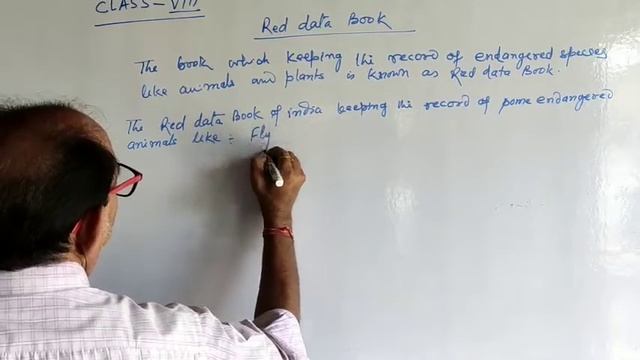 CLASS - VIII
Red data Book
The book which keeping the record of endangered species
like animals and plants is known as Red data Book.
The Red data Book of india keeping the record of some endangered
animals like :- Fly